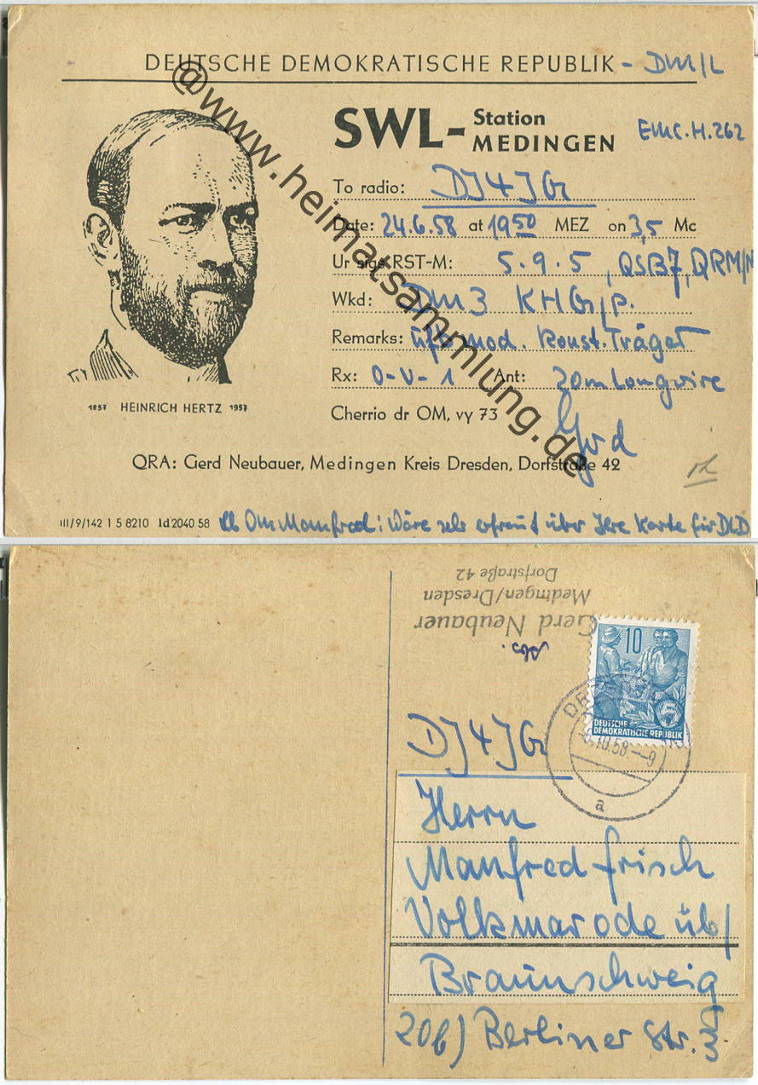 DEUTSCHE DEMOKRATISCHE REPUBLIK - DM/L
SWL- Station MEDINGEN
EMC.H.262
To radio: DJ4JG
Date: 24.6.58 at 19⁵⁰ MEZ on 3,5 Mc
Ur sigs RST-M: 5.9.5, QSB7, QRM/N
Wkd: DM3 KHG/p.
Remarks: mod. konst. Träger
Rx: 0-V-1 Ant: 20m Longwire
Cherrio dr OM, vy 73
Gerd
1857 HEINRICH HERTZ 1957
QRA: Gerd Neubauer, Medingen Kreis Dresden, Dorfstraße 42
III/9/142 1 5 8210 Id 2040 58 Lb Om Manfred: Wäre sehr erfreut über Ihre Karte für DLD
@www.heimatsammlung.de
Gerd Neubauer
Medingen/Dresden
Dorfstraße 42
10
DEUTSCHE
DEMOKRATISCHE REPUBLIK
.10.58.--9
a
DJ4JG
Herrn
Manfred Frisch
Volkmarode üb/
Braunschweig
20b) Berliner Str. 3